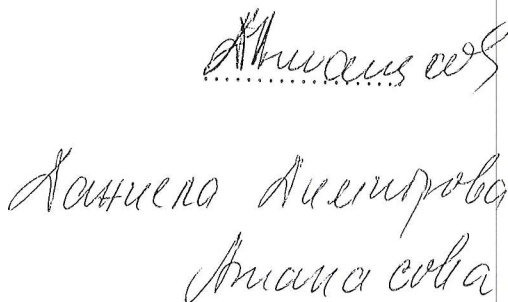 Атанасов
Даниела Димитрова
Атанасова